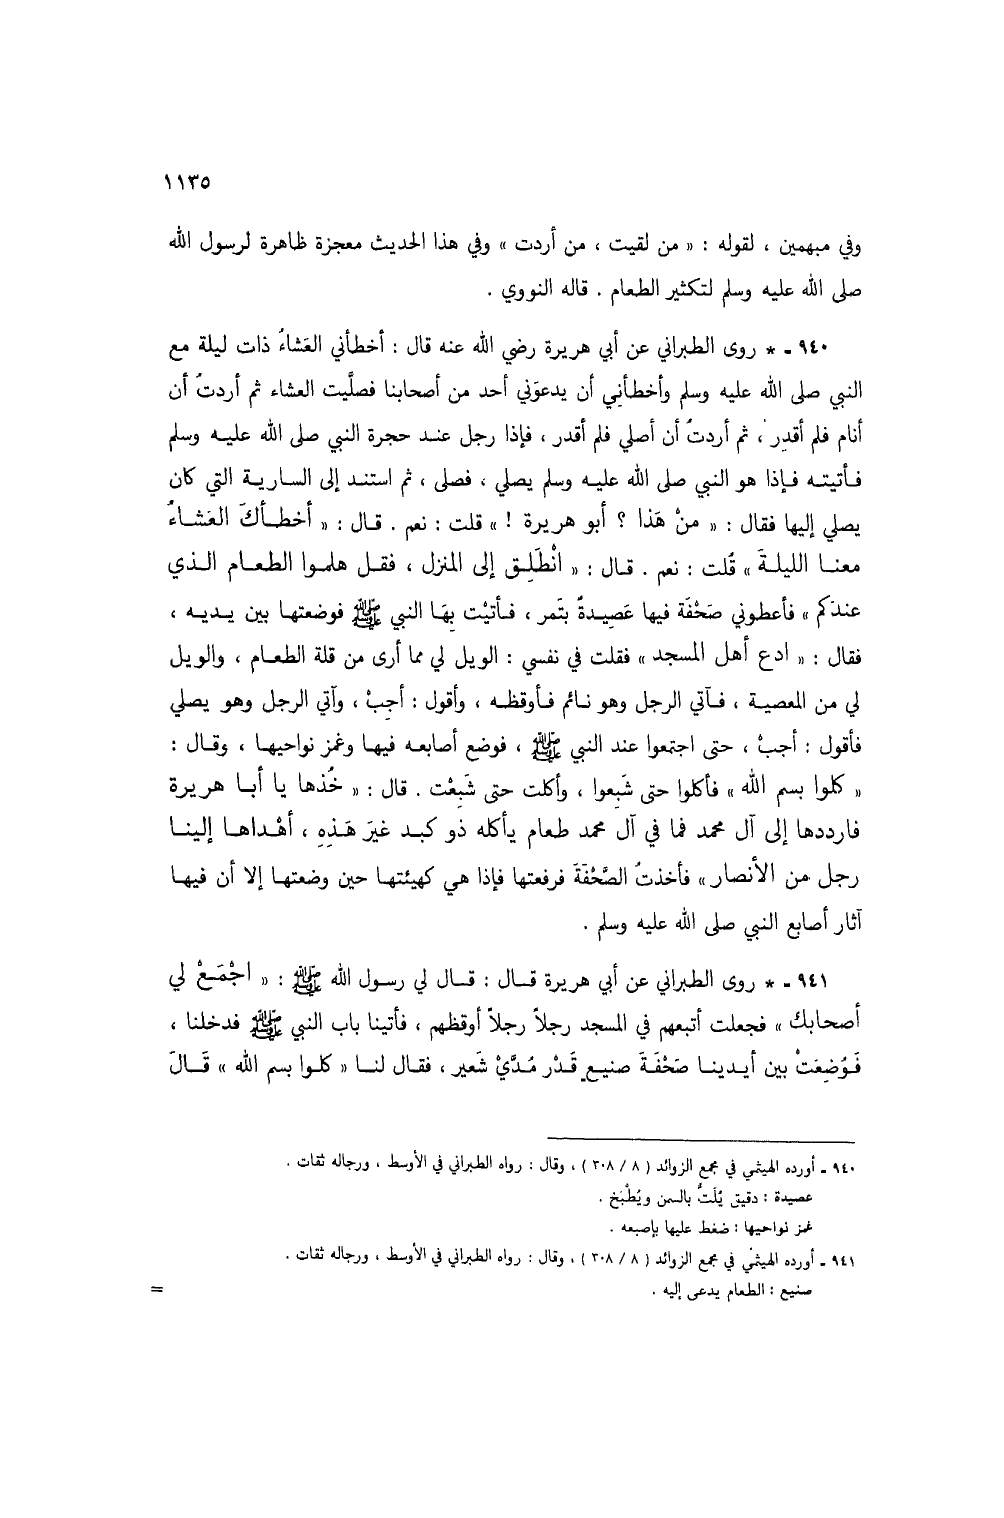 ١١٣٥
وفي مبهمين ، لقوله : « من لقيت ، من أردت » وفي هذا الحديث معجزة ظاهرة لرسول الله
صلى الله عليه وسلم لتكثير الطعام . قاله النووي .
٩٤٠ - * روى الطبراني عن أبي هريرة رضي الله عنه قال : أخطأني العَشاءُ ذات ليلة مع
النبي صلى الله عليه وسلم وأخطأنِي أن يدعوَني أحد من أصحابنا فصلَّيت العشاء ثم أردتُ أن
أنام فلم أقدِر ، ثم أردتُ أن أصلي فلم أقدر ، فإذا رجل عند حجرة النبي صلى الله عليه وسلم
فأتيته فإذا هو النبي صلى الله عليه وسلم يصلي ، فصلى ، ثم استند إلى السارية التي كان
يصلي إليها فقال : « منْ هَذا ؟ أبو هريرة ! » قلت : نعم . قال : « أخطأكَ العَشاءُ
معنا الليلةَ » قُلت : نعم . قال : « انْطَلِق إلى المنزل ، فقل هلموا الطعام الذي
عندَكم » فأعطوني صَحْفَة فيها عَصِيدةٌ بتَمر ، فأتيْت بِهَا النبي ﷺ فوضعتها بين يديه ،
فقال : « ادع أهل المسجد » فقلت في نفسي : الويل لي مما أرى من قلة الطعام ، والويل
لي من المعصية ، فآتي الرجل وهو نائم فأوقظه ، وأقول : أجِبْ ، وآتي الرجل وهو يصلي
فأقول : أجبْ ، حتى اجتمعوا عند النبي ﷺ ، فوضع أصابعه فيها وغمز نواحيها ، وقال :
« كلوا بسم الله » فأكلوا حتى شَبِعوا ، وأكلت حتى شَبِعْت . قال : « خُذها يا أبا هريرة
فارددها إلى آل محمد فما في آل محمد طعام يأكله ذو كبد غيرَ هَذِهِ ، أهْداها إلينا
رجل من الأنصار » فأخذتُ الصَّحْفَةَ فرفعتها فإذا هي كهيئتها حين وضعتها إلا أن فيها
آثار أصابع النبي صلى الله عليه وسلم .
٩٤١ - * روى الطبراني عن أبي هريرة قال : قال لي رسول الله ﷺ : « اجْمَعْ لي
أصحابك » فجعلت أتبعهم في المسجد رجلاً رجلاً أوقظهم ، فأتينا باب النبي ﷺ فدخلنا ،
فَوُضِعَتْ بين أيدينا صَحْفَةَ صنيعٍ قَدْر مُدَّيْ شَعير ، فقال لنا « كلوا بسم الله » قَالَ
٩٤٠ - أورده الهيثمي في مجمع الزوائد ( ٨ / ٣٠٨ ) ، وقال : رواه الطبراني في الأوسط ، ورجاله ثقات .
عصيدة : دقيق يُلَتُّ بالسمن ويُطْبَخ .
غمز نواحيها : ضغط عليها بإصبعه .
٩٤١ - أورده الهيثمي في مجمع الزوائد ( ٨ / ٣٠٨ ) ، وقال : رواه الطبراني في الأوسط ، ورجاله ثقات .
صنيع : الطعام يدعى إليه .
=